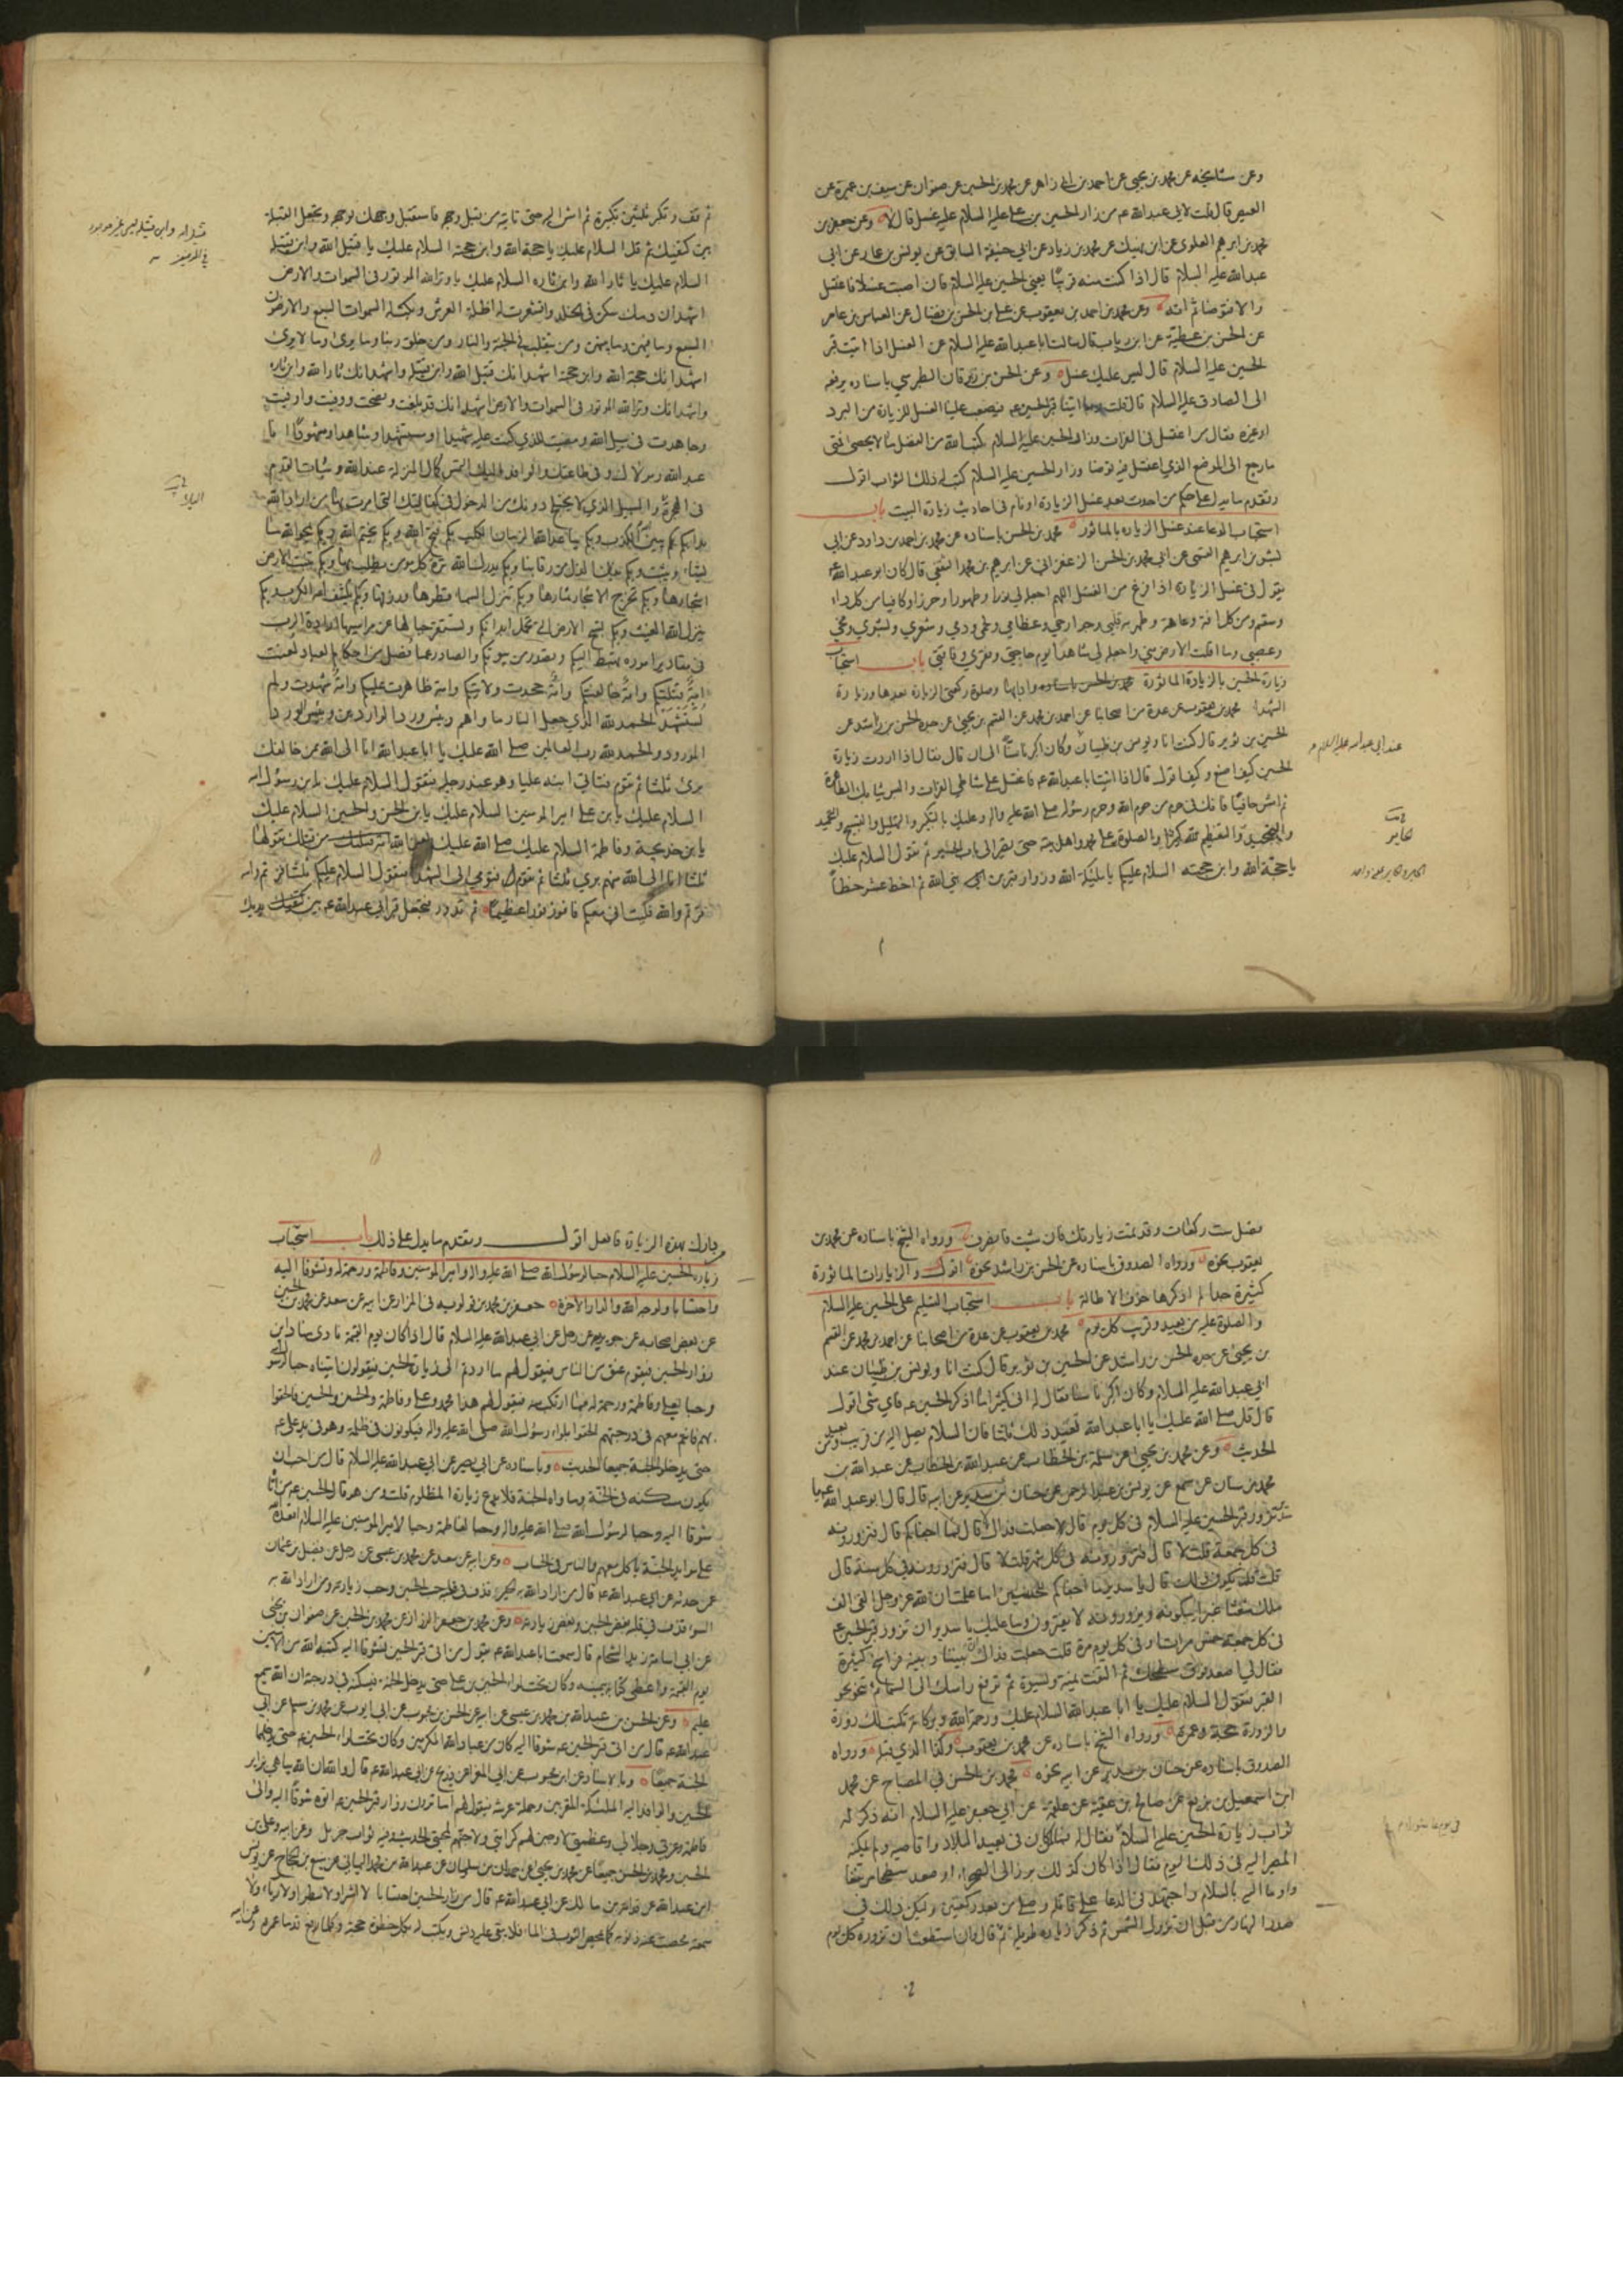 وعن مشايخه عن محمد بن يحيى عن احمد بن ابى زاهر عن محمد بن الحسين عن صفوان عن سيف بن عميرة عن
العيص قال قلت لابى عبدالله ع من زار الحسين بن على عليه السلام عليه غسل قال لا وعن جعفر بن
محمد بن ابرهيم العلوى عن ابن نهيك عن محمد بن زياد عن ابى حنيفة السابق عن يونس بن عمار عن ابى
عبدالله عليه السلام قال اذا كنت منه قريبا يعنى الحسين عليه السلام فان اصبت غسلا فاغتسل
والا فتوضا ثم ائته وعن محمد بن احمد بن يعقوب عن على بن الحسن بن فضال عن العباس بن عامر
عن الحسن بن عطية عن ابن رياب قال سالت ابا عبدالله عليه السلام عن الغسل اذا اتيت قبر
الحسين عليه السلام قال ليس عليك غسل وعن الحسن بن زبرقان الطبرسي باسناده يرفعه
الى الصادق عليه السلام قال قلت اتينا قبر الحسين ع فيصعب علينا الغسل للزيارة من البرد
او غيره فقال من اغتسل فى الفرات وزار الحسين عليه السلام كتب الله من الفضل ما لا يحصى فمتى
ما رجع الى الموضع الذي اغتسل فيه توضا وزار الحسين عليه السلام كتب له ذلك الثواب اقول
وتقدم ما يدل على حكم من احدث بعد غسل الزيارة او نام فى احاديث زيارة البيت باب
استحباب الدعا عند غسل الزياره بالماثور محمد بن الحسن باسناده عن محمد بن احمد بن داود عن ابى
بشير بن ابرهيم القمى عن ابى محمد بن الحسن الزعفرانى عن ابرهيم بن محمد الثقفى قال كان ابو عبدالله ع
يقول فى غسل الزيارة اذا فرغ من الغسل اللهم اجعله لى نورا وطهورا وحرزا وكافيا من كل داء
وسقم ومن كل افة وعاهة وطهر به قلبى وجوارحى وعظامى ولحمى ودمى وشعري وبشري ومخى
وعصبى وما اقلت الارض منى واجعله لى شاهدا يوم حاجتى وفقري وفاقتى باب استحباب
زيارة الحسين بالزيارة الماثورة وادابها وصلوة ركعتى الزيارة بعدها وزيارة
الشهدا محمد بن يعقوب عن عدة من اصحابنا عن احمد بن محمد عن القسم بن يحيى عن جده الحسن بن راشد عن
الحسين بن ثوير قال كنت انا ويونس بن ظبيان وكان اكبرنا سنا الى ان قال فقال اذا اردت زيارة
الحسين كيف اصنع وكيف اقول قال اذا اتيت ابا عبدالله ع فاغتسل على شاطى الفرات والبس ثيابك الطاهرة
ثم امش حافيا فانك فى حرم من حرم الله وحرم رسوله صلى الله عليه واله وعليك بالتكبير والتهليل والتسبيح والتحميد
والتعظيم لله كثيرا والصلوة على محمد واهل بيته حتى تصير الى باب الحسين ثم تقول السلام عليك
يا حجة الله وابن حجته السلام عليكم يا ملئكة الله وزوار قبر ابن نبى الله ثم اخط عشر خطا
عند ابى عبدالله عليه السلام
ثم قف وكبر ثلثين تكبيرة ثم امش اليه حتى تاتيه من قبل وجهه فاستقبل وجهك بوجهه وتجعل القبلة
بين كتفيك ثم قل السلام عليك يا حجة الله وابن حجته السلام عليك يا قتيل الله وابن قتيله
السلام عليك يا ثار الله وابن ثاره السلام عليك يا وتر الله الموتور فى السموات والارض
اشهد ان دمك سكن فى الخلد واقشعرت له اظلة العرش وبكى له السموات السبع والارضون
السبع وما فيهن وما بينهن ومن يتقلب فى الجنة والنار ومن خلق ربنا وما يرى وما لا يرى
اشهد انك حجة الله وابن حجته اشهد انك قتيل الله وابن قتيله واشهد انك ثار الله وابن ثاره
واشهد انك وتر الله الموتور فى السموات والارض اشهد انك قد بلغت ونصحت ووفيت واوفيت
وجاهدت فى سبيل الله ومضيت للذي كنت عليه شهيدا ومستشهدا وشاهدا ومشهودا انا
عبدالله ومولاك وفى طاعتك والوافد اليك التمس كمال المنزلة عندالله وثبات القدم
فى الهجرة اليك والسبيل الذي لا يختلج دونك من الدخول فى كفالتك التى امرت بها من اراد الله
بدا بكم بكم يبين الله الكذب وبكم يباعد الله الزمان الكلب بكم فتح الله وبكم يختم الله وبكم يمحو الله ما
يشاء ويثبت وبكم يفك الذل من رقابنا وبكم يدرك الله ترة كل مومن يطلب بها وبكم تنبت الارض
اشجارها وبكم تخرج الاشجار ثمارها وبكم تنزل السماء قطرها ورزقها وبكم يكشف الله الكرب وبكم
ينزل الله الغيث وبكم تسيخ الارض التى تحمل ابدانكم وتستقر جبالها عن مراسيها ارادة الرب
فى مقادير اموره تهبط اليكم وتصدر من بيوتكم والصادر عما فصل من احكام العباد لعنت
امة قتلتكم وامة خالفتكم وامة جحدت ولايتكم وامة ظاهرت عليكم وامة شهدت ولم
تستشهد الحمدلله الذي جعل النار ماواهم وبئس ورد الواردين وبئس الورد
المورود والحمدلله رب العالمين صلى الله عليك يا ابا عبدالله انا الى الله ممن خالفك
برئ ثلثا ثم تقوم فتاتى ابنه عليا وهو عند رجليه فتقول السلام عليك يا بن رسول الله
السلام عليك يا بن على امير المومنين السلام عليك يا بن الحسن والحسين السلام عليك
يا بن خديجة وفاطمة السلام عليك صلى الله عليك لعن الله من قتلك تقولها
ثلثا انا الى الله منهم برئ ثلثا ثم تقوم فتومى الى الشهدا وتقول السلام عليكم ثلثا فزتم والله
فزتم والله فليت انى معكم فافوز فوزا عظيما ثم تدور فتجعل قبر ابى عبدالله ع بين يديك
فصل ست ركعات وقد تمت زيارتك فان شئت فانصرف ورواه الشيخ باسناده عن محمد بن
يعقوب نحوه ورواه الصدوق باسناده عن الحسن بن راشد نحوه اقول والزيارات الماثورة
كثيرة جدا لم اذكرها خوف الاطالة باب استحباب التسليم على الحسين عليه السلام
والصلوة عليه من بعيد وقريب كل يوم محمد بن يعقوب عن عدة من اصحابنا عن احمد بن محمد عن القسم
بن يحيى عن جده الحسن بن راشد عن الحسين بن ثوير قال كنت انا ويونس بن ظبيان عند
ابى عبدالله عليه السلام وكان اكبرنا سنا فقال له انى كثيرا ما اذكر الحسين ع فاي شى اقول
قال قل صلى الله عليك يا ابا عبدالله تعيد ذلك ثلثا فان السلام يصل اليه من قريب ومن بعيد
الحديث وعن محمد بن يحيى عن سلمة بن الخطاب عن عبدالله بن الخطاب عن عبدالله بن
محمد بن سنان عن مسمع عن يونس بن عبدالرحمن عن حنان بن سدير عن ابيه قال قال ابو عبدالله ع يا
سدير تزور قبر الحسين عليه السلام فى كل يوم قال لا جعلت فداك قال فما اجفاكم قال فتزورونه
فى كل جمعة قلت لا قال فتزورونه فى كل شهر قلت لا قال فتزورونه فى كل سنة قال
قلت قد يكون ذلك قال يا سدير ما اجفاكم للحسين اما علمت ان لله عز وجل الفى الف
ملك شعثا غبرا يبكونه ويزورونه لا يفترون وما عليك يا سدير ان تزور قبر الحسين ع
فى كل جمعة خمس مرات او فى كل يوم مرة قلت جعلت فداك ان بيننا وبينه فراسخ كثيرة
فقال لى اصعد فوق سطحك ثم التفت يمنة ويسرة ثم ترفع راسك الى السماء ثم تنحو نحو
القبر فتقول السلام عليك يا ابا عبدالله السلام عليك ورحمة الله وبركاته تكتب لك زورة
والزورة حجة وعمرة ورواه الشيخ باسناده عن محمد بن يعقوب وكذا الذي قبله ورواه
الصدوق باسناده عن حنان بن سدير عن ابيه نحوه محمد بن الحسن فى المصباح عن محمد
ابن اسمعيل بن بزيع عن صالح بن عقبة عن علقمة عن ابى جعفر عليه السلام انه ذكر له
ثواب زيارة الحسين عليه السلام فقال له فمن كان فى بعيد البلاد واقاصيه ولم يمكنه
المصير اليه فى ذلك اليوم فقال اذا كان كذلك برز الى الصحراء او صعد سطحا مرتفعا
واوما اليه بالسلام واجتهد فى الدعا على قاتله وصلى من بعد ركعتين وليكن ذلك فى
صدر النهار من قبل ان تزول الشمس ثم ذكر زيارة طويلة ثم قال وان استطعت ان تزوره كل يوم
من دارك بهذه الزيارة فافعل اقول وتقدم ما يدل على ذلك باب استحباب
زيارة الحسين عليه السلام حبا لرسول الله صلى الله عليه واله وامير المومنين وفاطمة ورحمة له وتشوقا اليه
واحتسابا ولوجه الله والدار الاخرة جعفر بن محمد بن قولويه فى المزار عن ابيه عن سعد عن محمد بن الحسين
عن بعض اصحابه عن جويرية عن رجل عن ابى عبدالله عليه السلام قال اذا كان يوم القيمة نادى مناد اين
زوار الحسين فيقوم عنق من الناس فيقول لهم ما اردتم الى زيارة الحسين فيقولون اتيناه حبا لرسول الله
وحبا لعلى وفاطمة ورحمة له مما ارتكب منه فيقول لهم هذا محمد وعلى وفاطمة والحسن والحسين فالحقوا
بهم فانتم معهم فى درجتهم الحقوا بلواء رسول الله صلى الله عليه واله فيكونون فى ظله وهو فى يد على ع
حتى يدخلوا الجنة جميعا الحديث وباسناده عن ابى بصير عن ابى عبدالله عليه السلام قال من احب ان
يكون مسكنه فى الجنة وماواه الجنة فلا يدع زيارة المظلوم قلت ومن هو قال الحسين ع من اتاه
شوقا اليه وحبا لرسول الله صلى الله عليه واله وحبا لفاطمة وحبا لامير المومنين عليه السلام اقعده الله
على موايد الجنة ياكل معهم والناس فى الحساب وعن ابيه عن سعد عن محمد بن عيسى عن رجل عن فضيل بن عثمان
عن حدثه عن ابى عبدالله ع قال من اراد الله به الخير قذف فى قلبه حب الحسين وحب زيارته ومن اراد الله به
السوء قذف فى قلبه بغض الحسين وبغض زيارته وعن محمد بن جعفر الرزاز عن محمد بن الحسين عن صفوان بن يحيى
عن ابى اسامة زيد الشحام قال سمعت ابا عبدالله ع يقول من اتى قبر الحسين تشوقا اليه كتبه الله من الامنين
يوم القيمة واعطى كتابه بيمينه وكان تحت لواء الحسين بن على حتى يدخل الجنة فيسكنه فى درجته ان الله سميع
عليم وعن الحسن بن عبدالله بن محمد بن عيسى عن ابيه عن الحسن بن محبوب عن ابى ايوب عن محمد بن مسلم عن ابى
عبدالله ع قال من اتى قبر الحسين ع شوقا اليه كان من عباد الله المكرمين وكان تحت لواء الحسين ع حتى يدخلهما
الجنة جميعا وبالاسناد عن ابن محبوب عن ابى المغرا عن ذريح عن ابى عبدالله ع قال والله ان الله يباهى بزاير
الحسين والوافد اليه الملئكة المقربين وحملة عرشه فيقول لهم اما ترون زوار قبر الحسين ع اتوه شوقا اليه والى
فاطمة وعزتى وجلالى وعظمتى لاوجبن لهم كرامتى ولاحبنهم لمحبتى الحديث وفيه ثواب جزيل وعن ابيه وعلى بن
الحسين ومحمد بن الحسن جميعا عن محمد بن يحيى عن حمدان بن سليمان عن عبدالله بن محمد اليمانى عن منيع بن الحجاج عن يونس
ابن عبدالله عن قدامة بن مالك عن ابى عبدالله ع قال من زار الحسين احتسابا لا اشرا ولا بطرا ولا رياء ولا
سمعة محصت عنه ذنوبه كما يمحص الثوب فى الماء فلا يبقى عليه دنس ويكتب له بكل خطوة حجة وكلما رفع قدما عمرة وعن ابيه